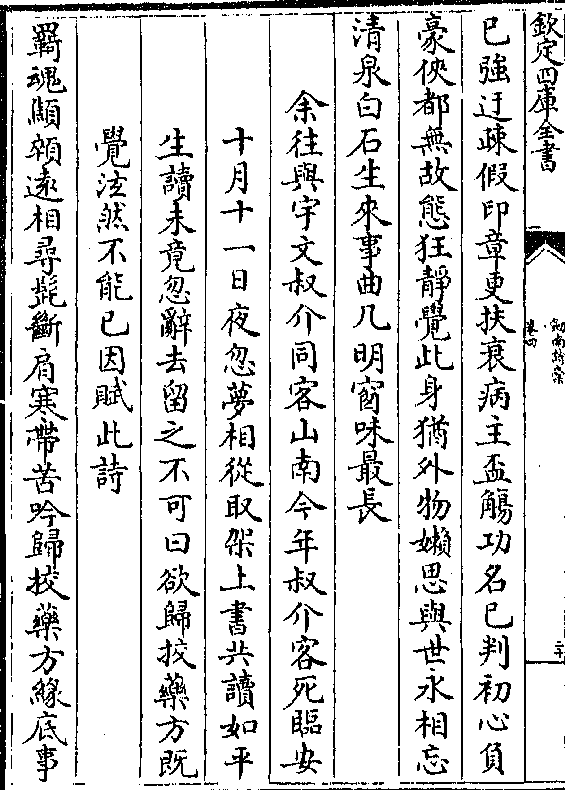 欽定四庫全書
劍南詩稾
卷四
已強迂疎假印章更扶衰病主盃觴功名已判初心負
豪俠都無故態狂靜覺此身猶外物嬾思與世永相忘
清泉白石生來事曲几明窗味最長
余往與宇文叔介同客山南今年叔介客死臨安
十月十一日夜忽夢相從取架上書共讀如平
生讀未竟忽辭去留之不可曰欲歸挍藥方既
覺泫然不能已因賦此詩
羇魂顦顇遠相尋髭斷肩寒帶苦吟歸挍藥方緣底事